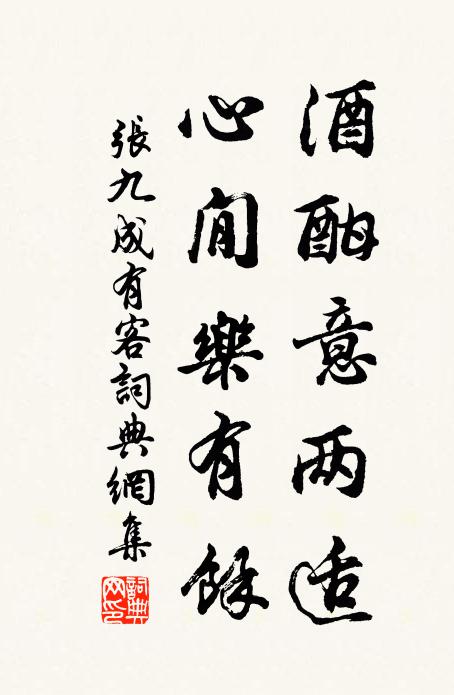 酒酣意两适
心閒樂有餘
張九成有客詞典網集
詞典网印